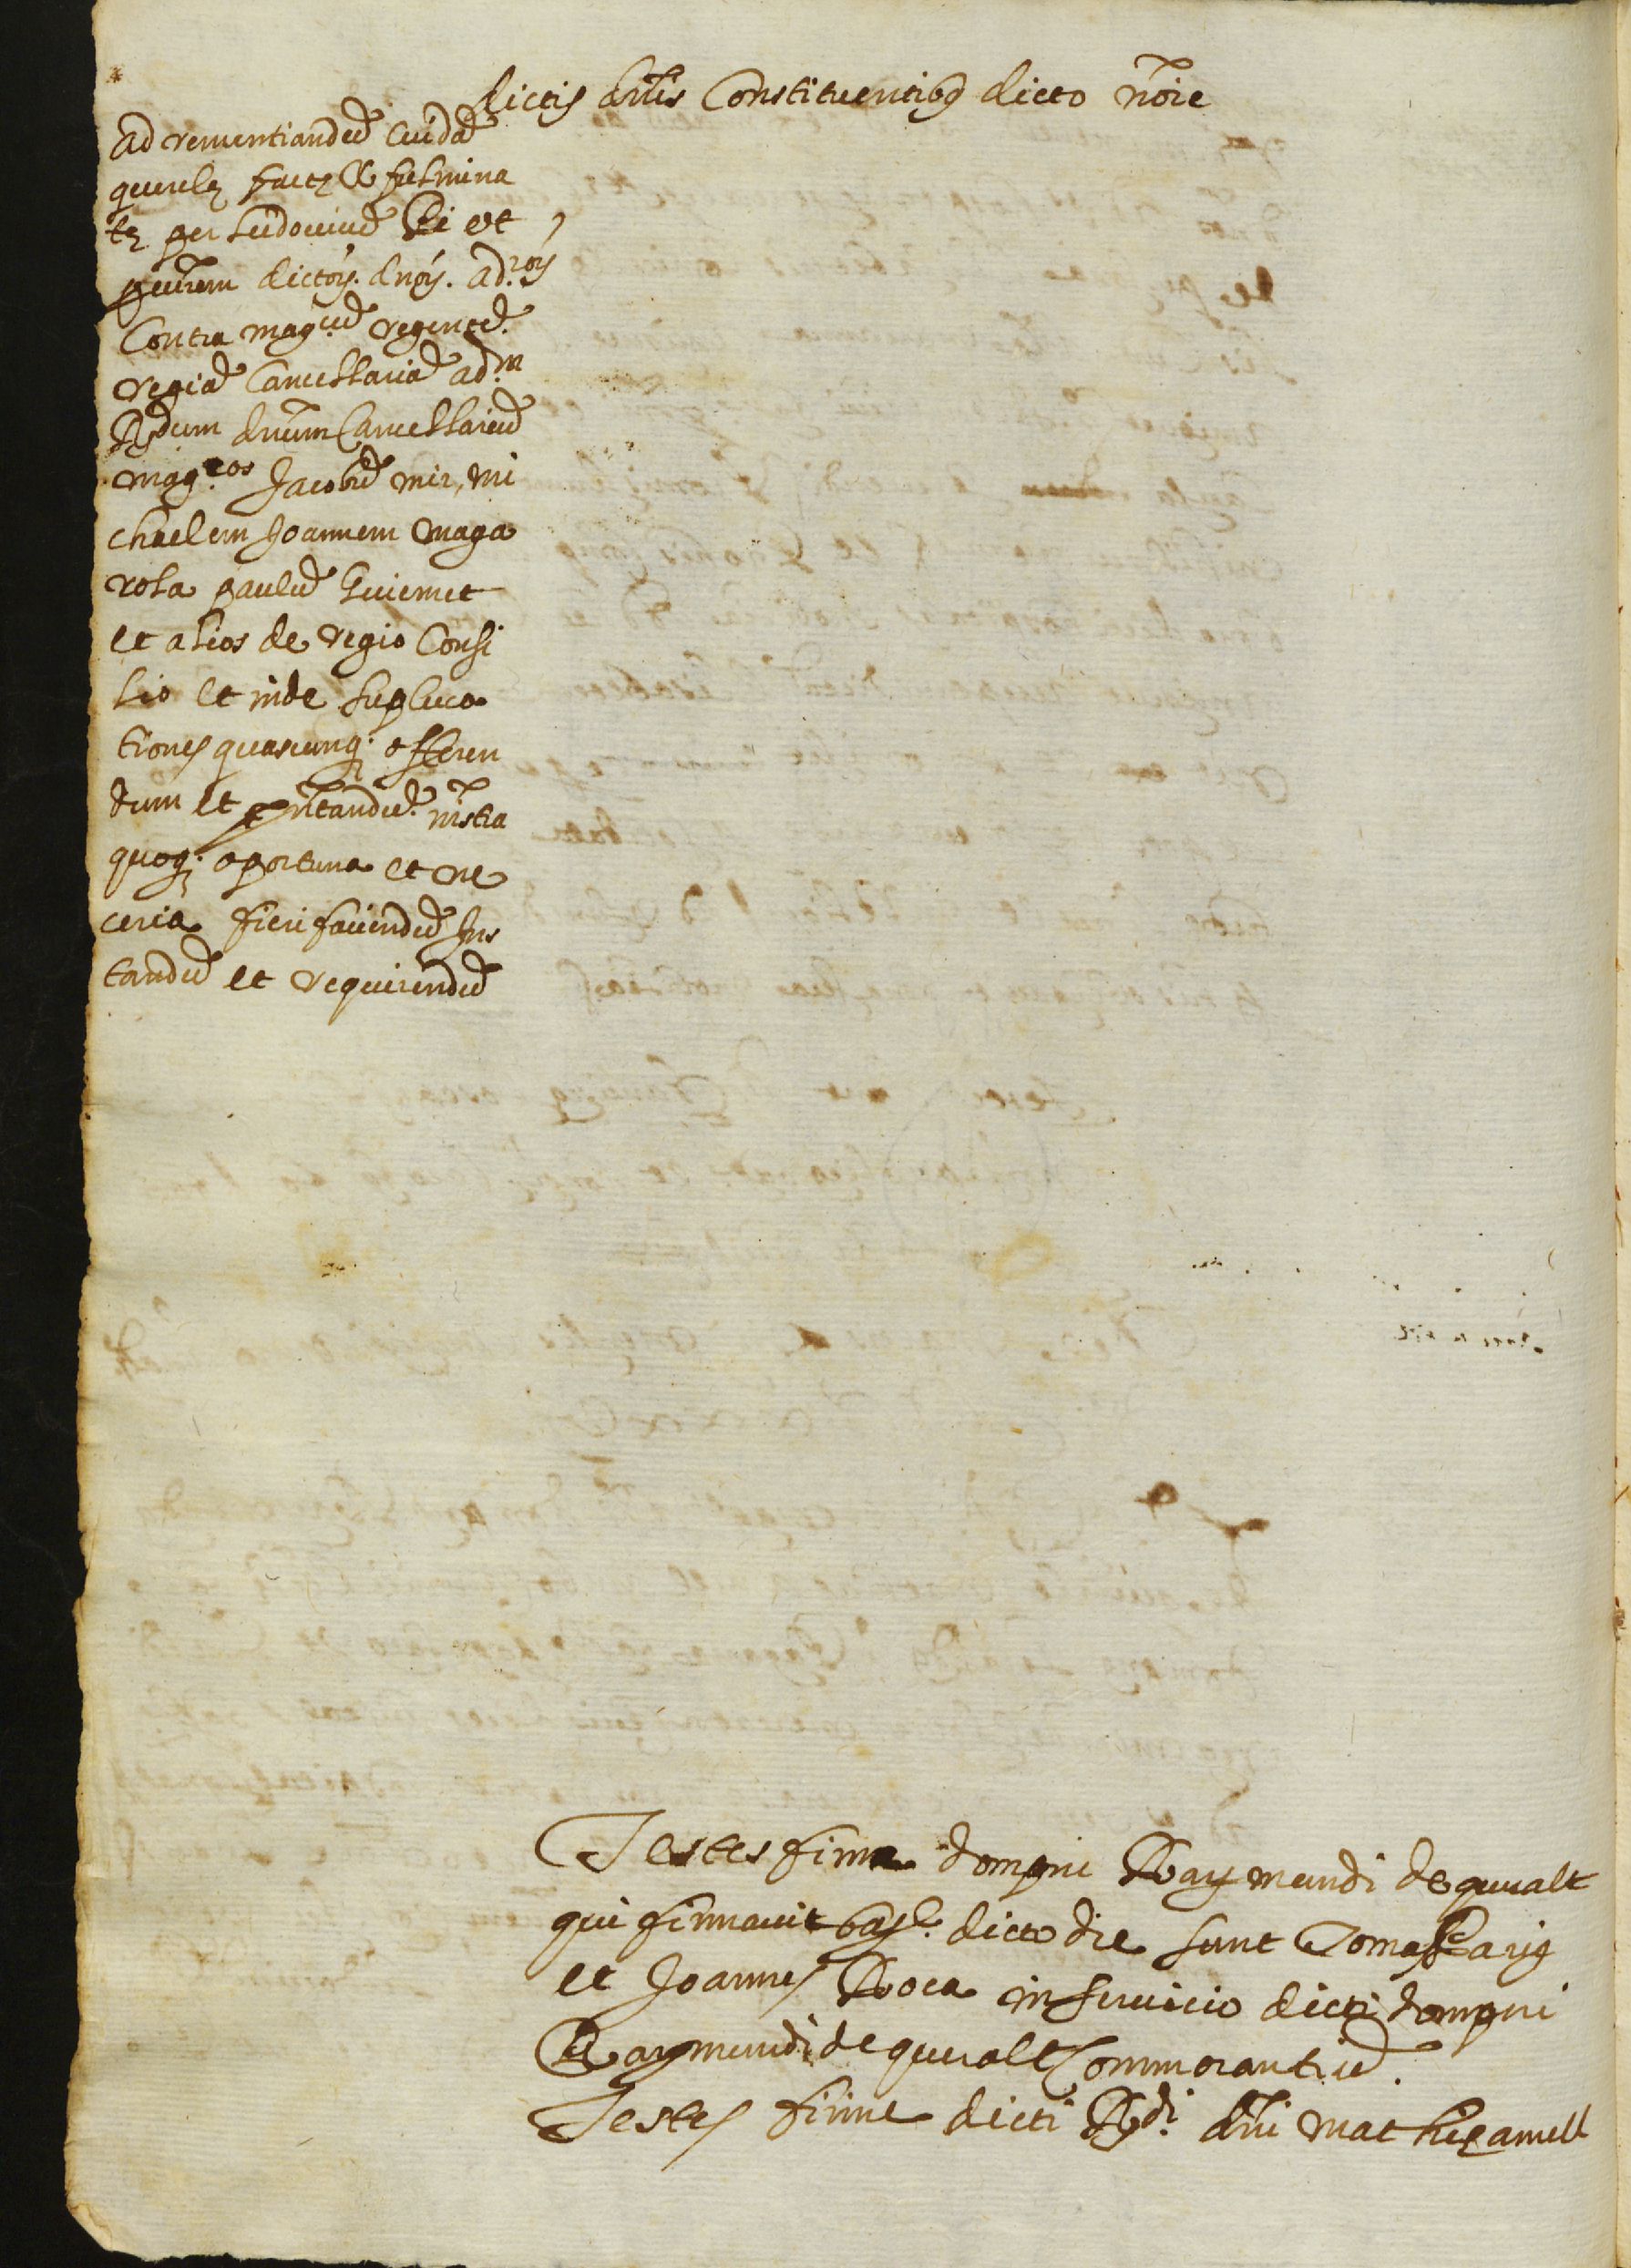 dictis dn̄is Constituentibꝫ dicto nōie
Ad renuntiandū cuidā
querelę factę & fulmina
tę per Ludovicū et
dictoꝝ. dnoꝝ. ad.roꝝ
Contra mag.cū regentē.
regiā Cancellariā ad.m
Rdum dnūm Cancellariū
mag.cos Jacobū mir, mi
chaelem Joannem maga
rola paulū Guiemet
et alios de regio Consi
lio et inde suplica
tiones quascunq. offeren
dum et pn̄tandū. ins̄tra
quoq. oportuna et ne
ceria fieri faciendū Ins
tandū et requirendū
Testes firma dompni Raymundi de queralt
qui firmavit dicto die sunt Tomas
et Joannes Roca in servicio dicti dompni
Raymundi de queralt Commorantiū.
Testes firme dicti Rdi. dn̄i mathie amell